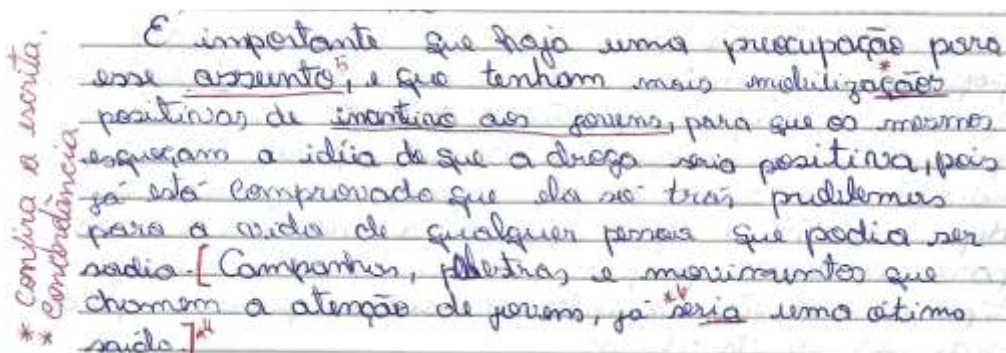 * confira a escrita.
** concordância
É importante que haja uma preocupação para
esse assunto⁵, e que tenham mais mobilizaçãos*
positivas de insentivo aos jovens, para que os mesmos
esqueçam a idéia de que a droga seria positiva, pois
já está comprovado que ela só trás problemas
para a vida de qualquer pessoa que podia ser
sadia. [Campanhas, palestras, e movimentos que
chamem a atenção de jovens, já seria** uma ótima
saída.]*⁴